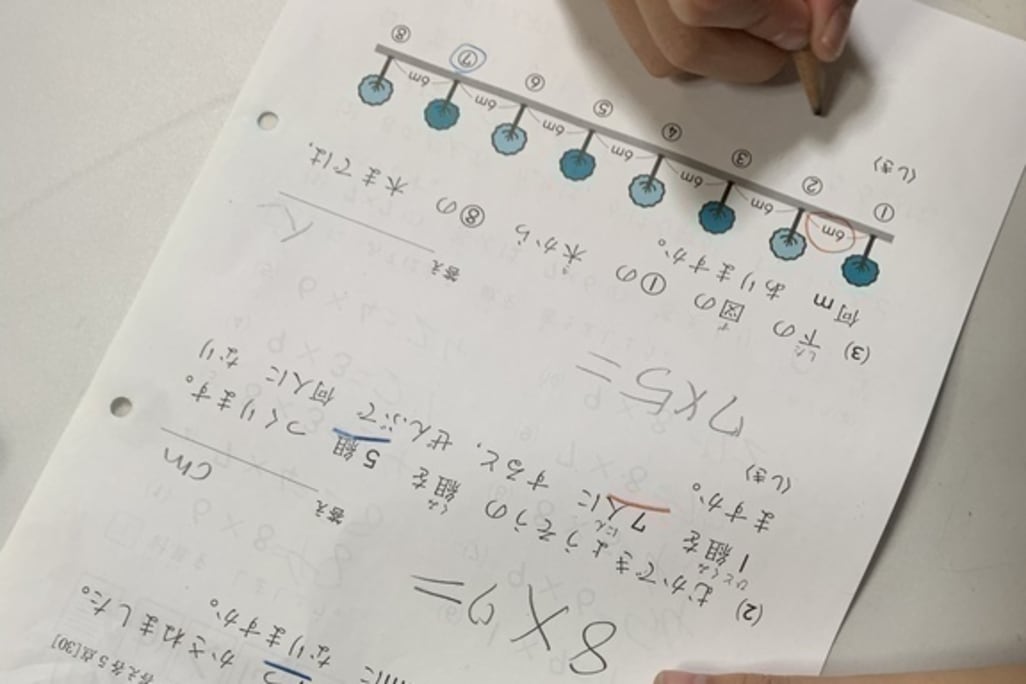 答え各5点[30]
かさねました。
なりますか。
8×9=
答え cm
(2) むかできょうそうの 組を 5組 つくります。
1組を 7人に すると、ぜんぶで 何人に なり
ますか。
(しき)
7×5=
答え 人
(3) 下の 図の ①の 木から ⑧の 木までは、
何m ありますか。
6m 6m 6m 6m 6m 6m 6m
① ② ③ ④ ⑤ ⑥ ⑦ ⑧
(しき)